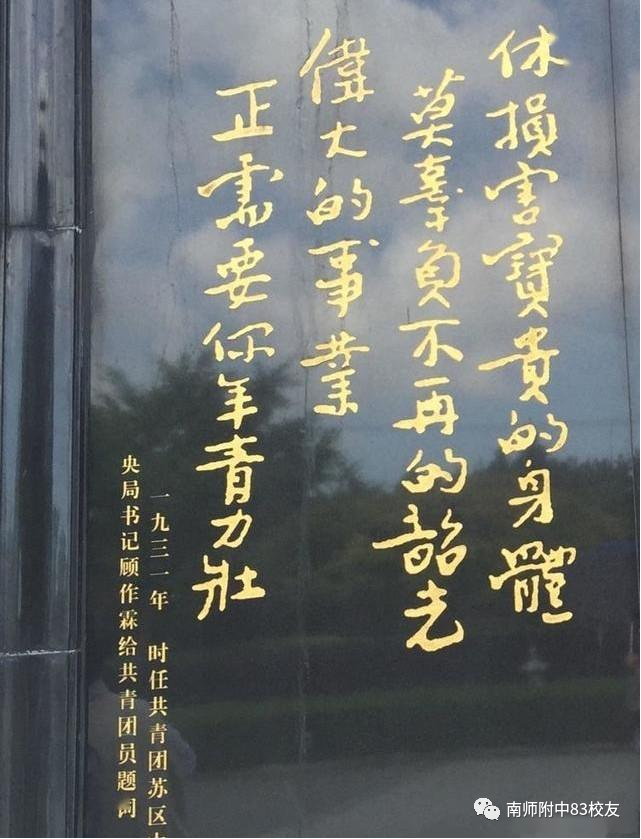 休損害寶貴的身體
莫辜負不再的韶光
偉大的事業
正需要你年青力壯
一九三一年 时任共青团苏区中
央局书记顾作霖给共青团员题词
南师附中83校友